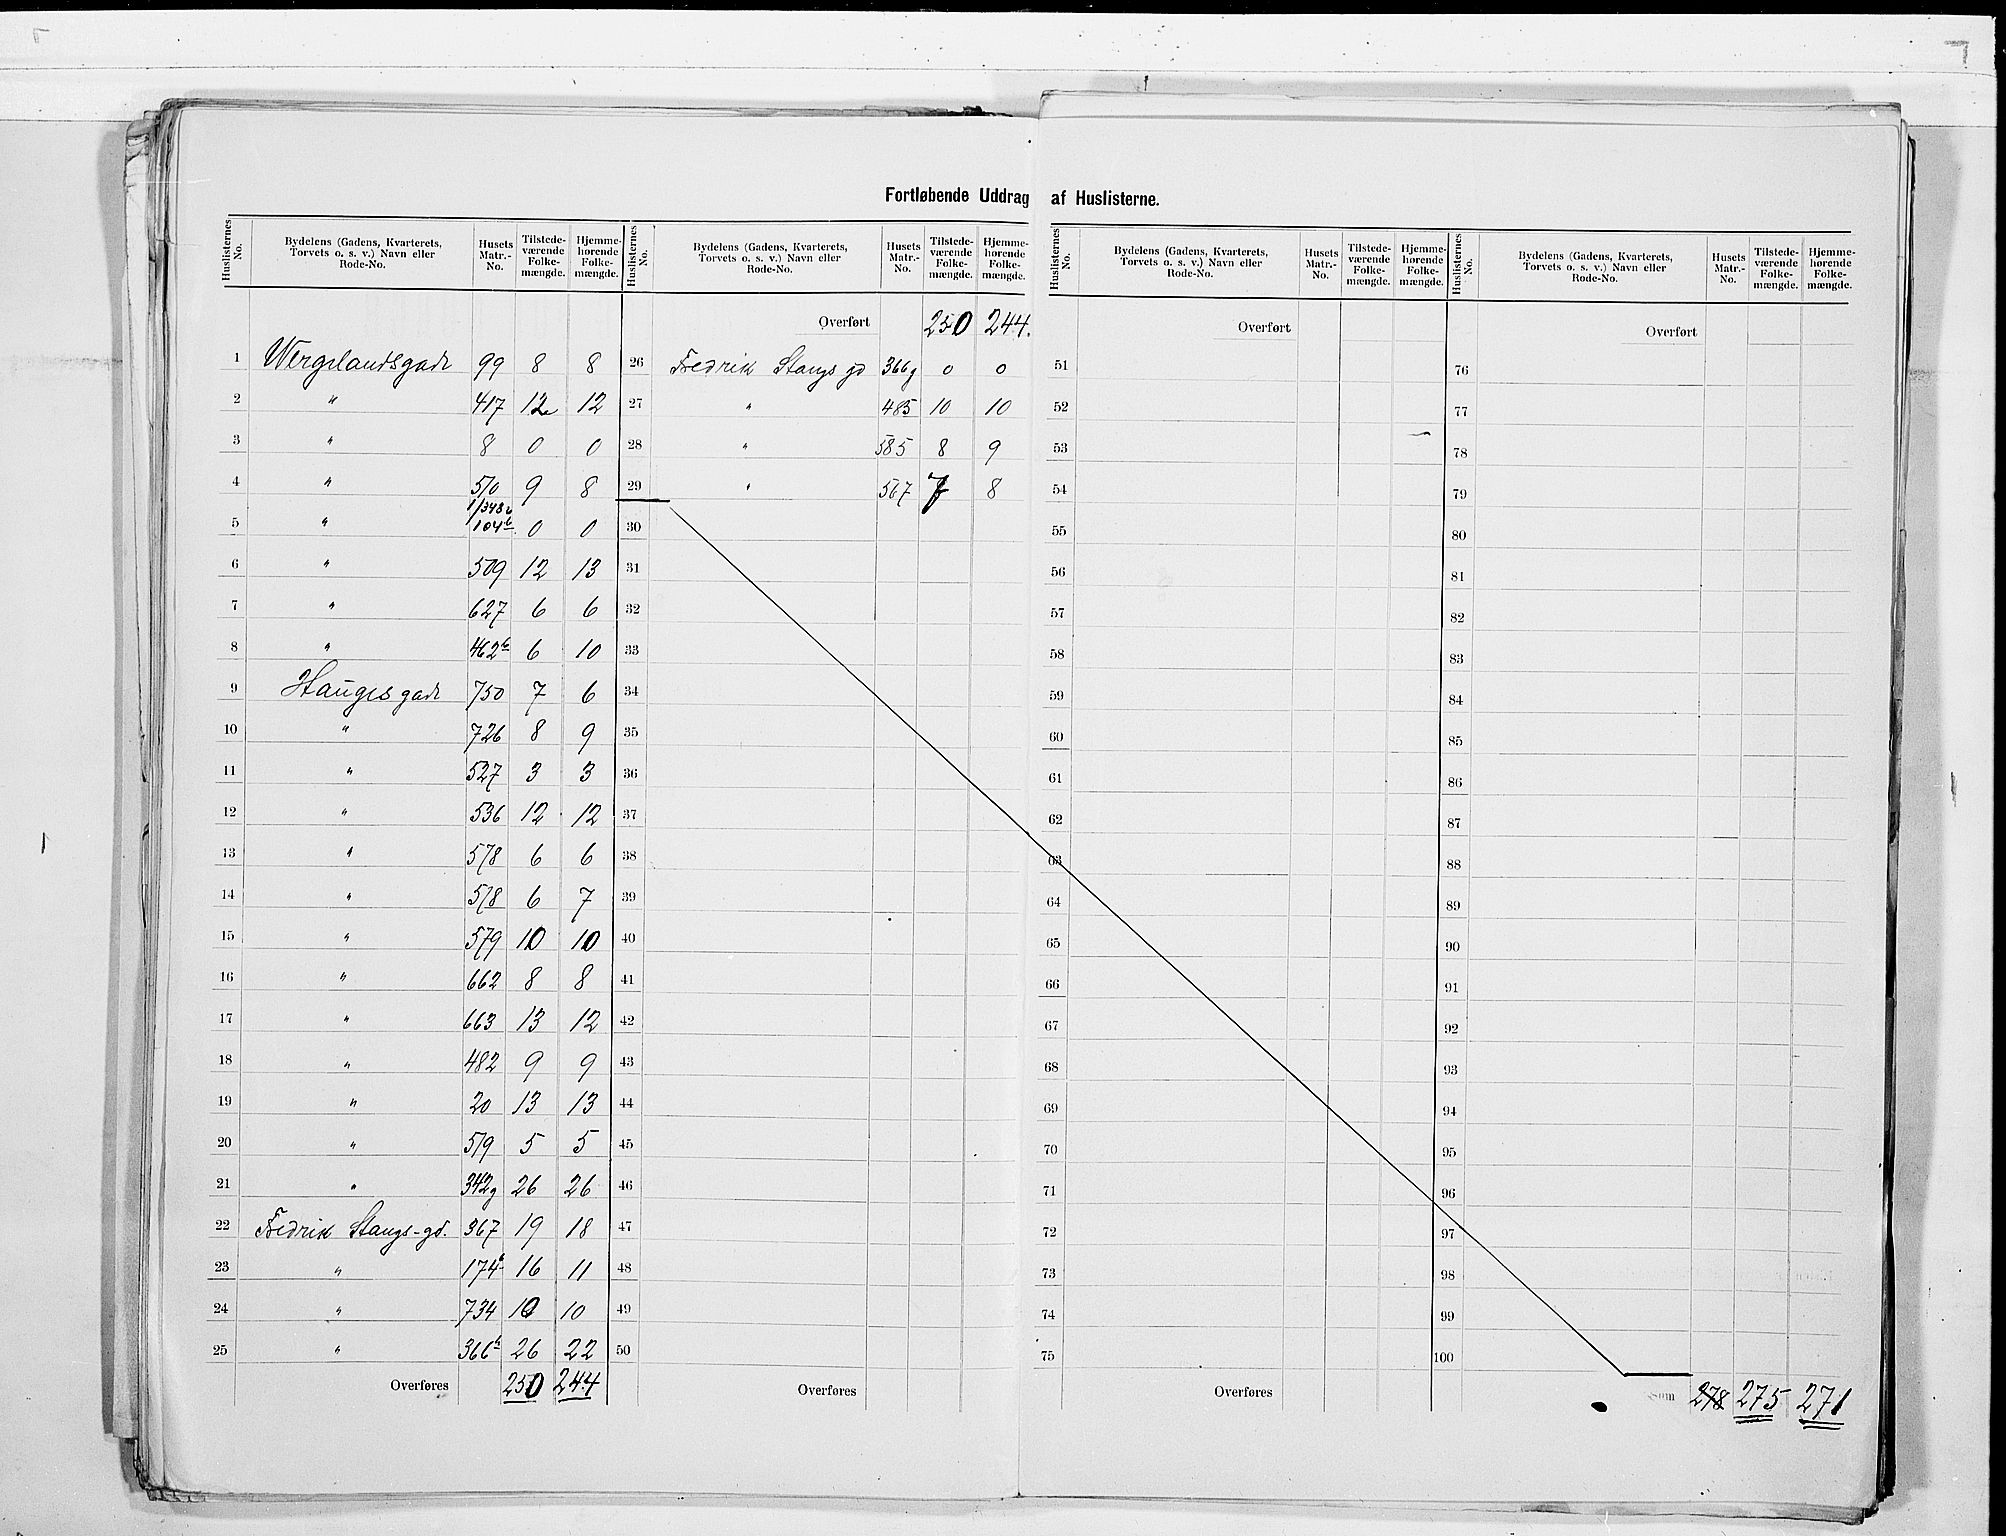 Fortløbende Uddrag af Huslisterne.
Huslisternes No. | Bydelens (Gadens, Kvarterets, Torvets o. s. v.) Navn eller Rode-No. | Husets Matr.-No. | Tilstedeværende Folkemængde. | Hjemmehørende Folkemængde.
1 Wergelandsgade 99 8 8
2 " 417 12 12
3 " 8 0 0
4 " 510 9 8
5 " 1/348 b 104 b 0 0
6 " 509 12 13
7 " 627 6 6
8 " 462 b 6 10
9 Hauges gade 750 7 6
10 " 726 8 9
11 " 527 3 3
12 " 536 12 12
13 " 578 6 6
14 " 518 6 7
15 " 579 10 10
16 " 662 8 8
17 " 663 13 12
18 " 482 9 9
19 " 20 13 13
20 " 519 5 5
21 " 342g 26 26
22 Fredrik Stangs-gd. 367 19 18
23 " 174 b 16 11
24 " 734 10 10
25 " 366 b 26 22
Overføres 250 244
Huslisternes No. | Bydelens (Gadens, Kvarterets, Torvets o. s. v.) Navn eller Rode-No. | Husets Matr.-No. | Tilstedeværende Folkemængde. | Hjemmehørende Folkemængde.
Overført 250 244.
26 Fredrik Stangs gd 366g 0 0
27 " 485 10 10
28 " 585 8 9
29 " 567 7 8
30
31
32
33
34
35
36
37
38
39
40
41
42
43
44
45
46
47
48
49
50
Overføres
Huslisternes No. | Bydelens (Gadens, Kvarterets, Torvets o. s. v.) Navn eller Rode-No. | Husets Matr.-No. | Tilstedeværende Folkemængde. | Hjemmehørende Folkemængde.
Overført
51
52
53
54
55
56
57
58
59
60
61
62
63
64
65
66
67
68
69
70
71
72
73
74
75
Overføres
Huslisternes No. | Bydelens (Gadens, Kvarterets, Torvets o. s. v.) Navn eller Rode-No. | Husets Matr.-No. | Tilstedeværende Folkemængde. | Hjemmehørende Folkemængde.
Overført
76
77
78
79
80
81
82
83
84
85
86
87
88
89
90
91
92
93
94
95
96
97
98
99
100
Sum 278 275 271